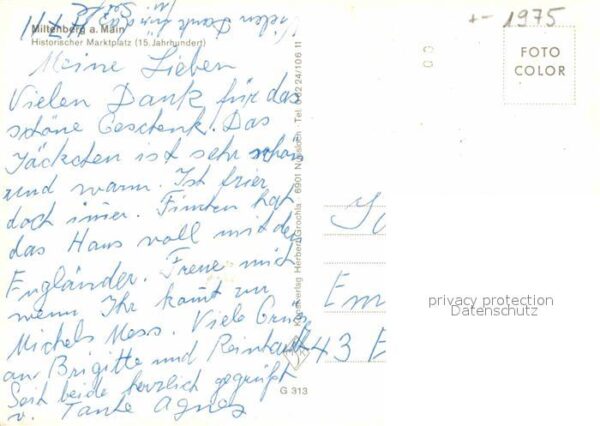 +- 1975
Vielen Dank für
Miltenberg a. Main
Historischer Marktplatz (15. Jahrhundert)
FOTO
COLOR
Meine Lieben
Vielen Dank für das
schöne Geschenk. Das
Jäckchen ist sehr schön
und warm. Ist hier
doch immer. Finten hat
das Haus voll mit den
Engländer. Freue mich
wenn Ihr kommt zur
Michels Mess. Viele Grüße
an Brigitte und Reinhardt
Seit beide herzlich gegrüßt
v. Tante Agnes
Kunstverlag Herbert Grochla · 6901 Tel. 06224/10611
G 313
Em
43 E
privacy protection
Datenschutz